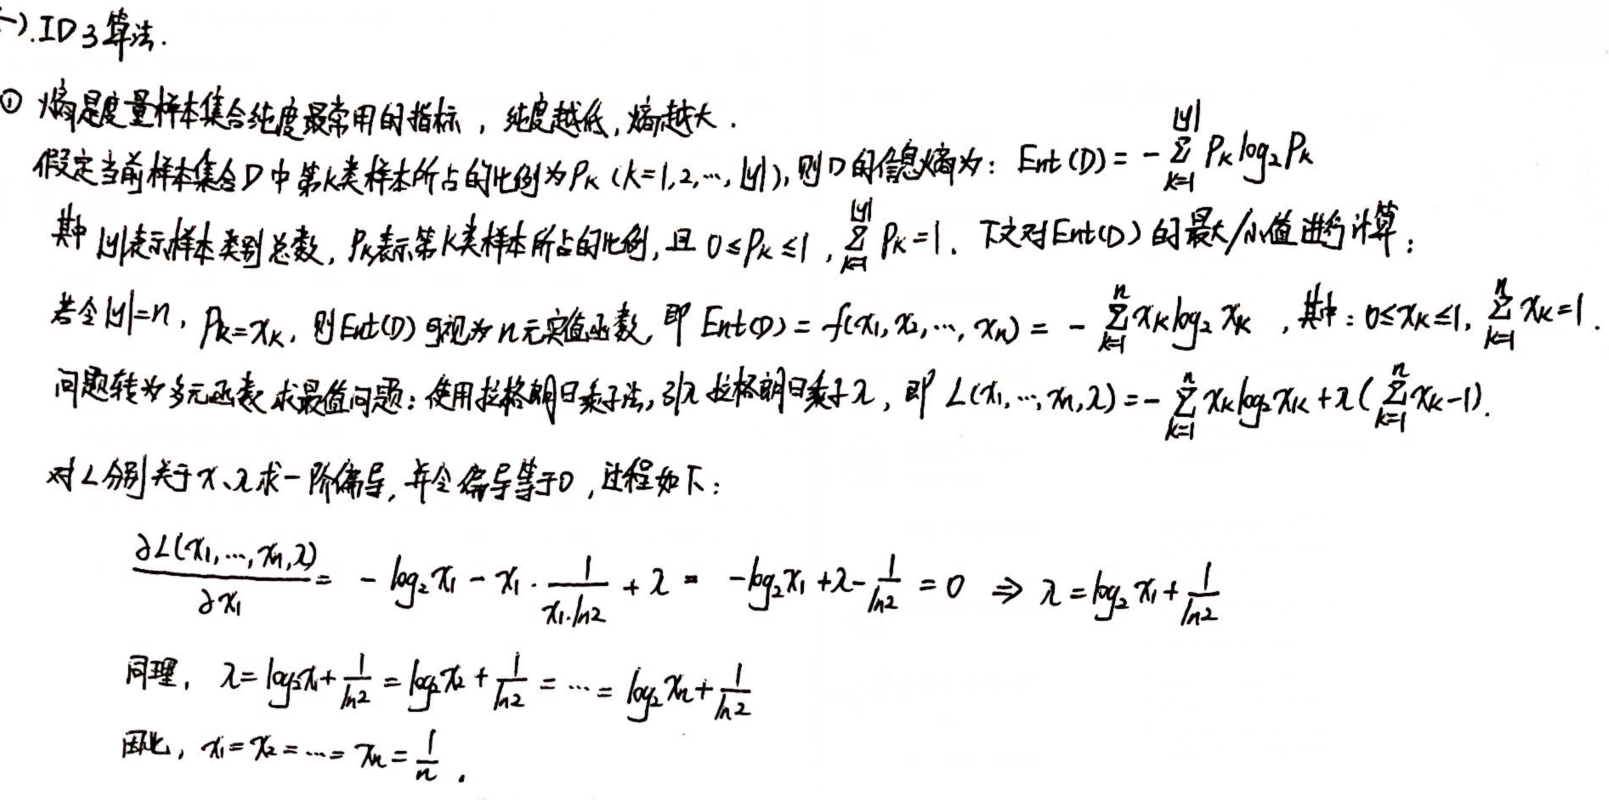 一).ID3算法.
① 熵是度量样本集合纯度最常用的指标，纯度越低,熵越大.
假定当前样本集合D中第k类样本所占的比例为Pk (k=1,2,…,|y|),则D的信息熵为: Ent(D) = -∑_{k=1}^{|y|} Pk log₂Pk
其中|y|表示样本类别总数, Pk表示第k类样本所占的比例,且 0≤Pk≤1, ∑_{k=1}^{|y|} Pk=1. 下文对Ent(D)的最大/小值进行计算:
若令|y|=n, Pk=xk, 则Ent(D)可视为n元实值函数,即 Ent(D) = f(x₁,x₂,…,xn) = -∑_{k=1}^{n} xk log₂ xk ,其中: 0≤xk≤1, ∑_{k=1}^{n} xk=1.
问题转为多元函数求最值问题:使用拉格朗日乘子法,引入拉格朗日乘子λ,即 L(x₁,…,xn,λ) = -∑_{k=1}^{n} xk log₂xk + λ(∑_{k=1}^{n} xk-1).
对L分别关于x、λ求一阶偏导,并令偏导等于0,过程如下:
∂L(x₁,…,xn,λ)/∂x₁ = -log₂x₁ - x₁·1/(x₁·ln2) + λ = -log₂x₁+λ-1/ln2 = 0 ⇒ λ=log₂x₁+1/ln2
同理, λ=log₂x₁+1/ln2 = log₂x₂+1/ln2 = … = log₂xn+1/ln2
因此, x₁=x₂=…=xn=1/n.